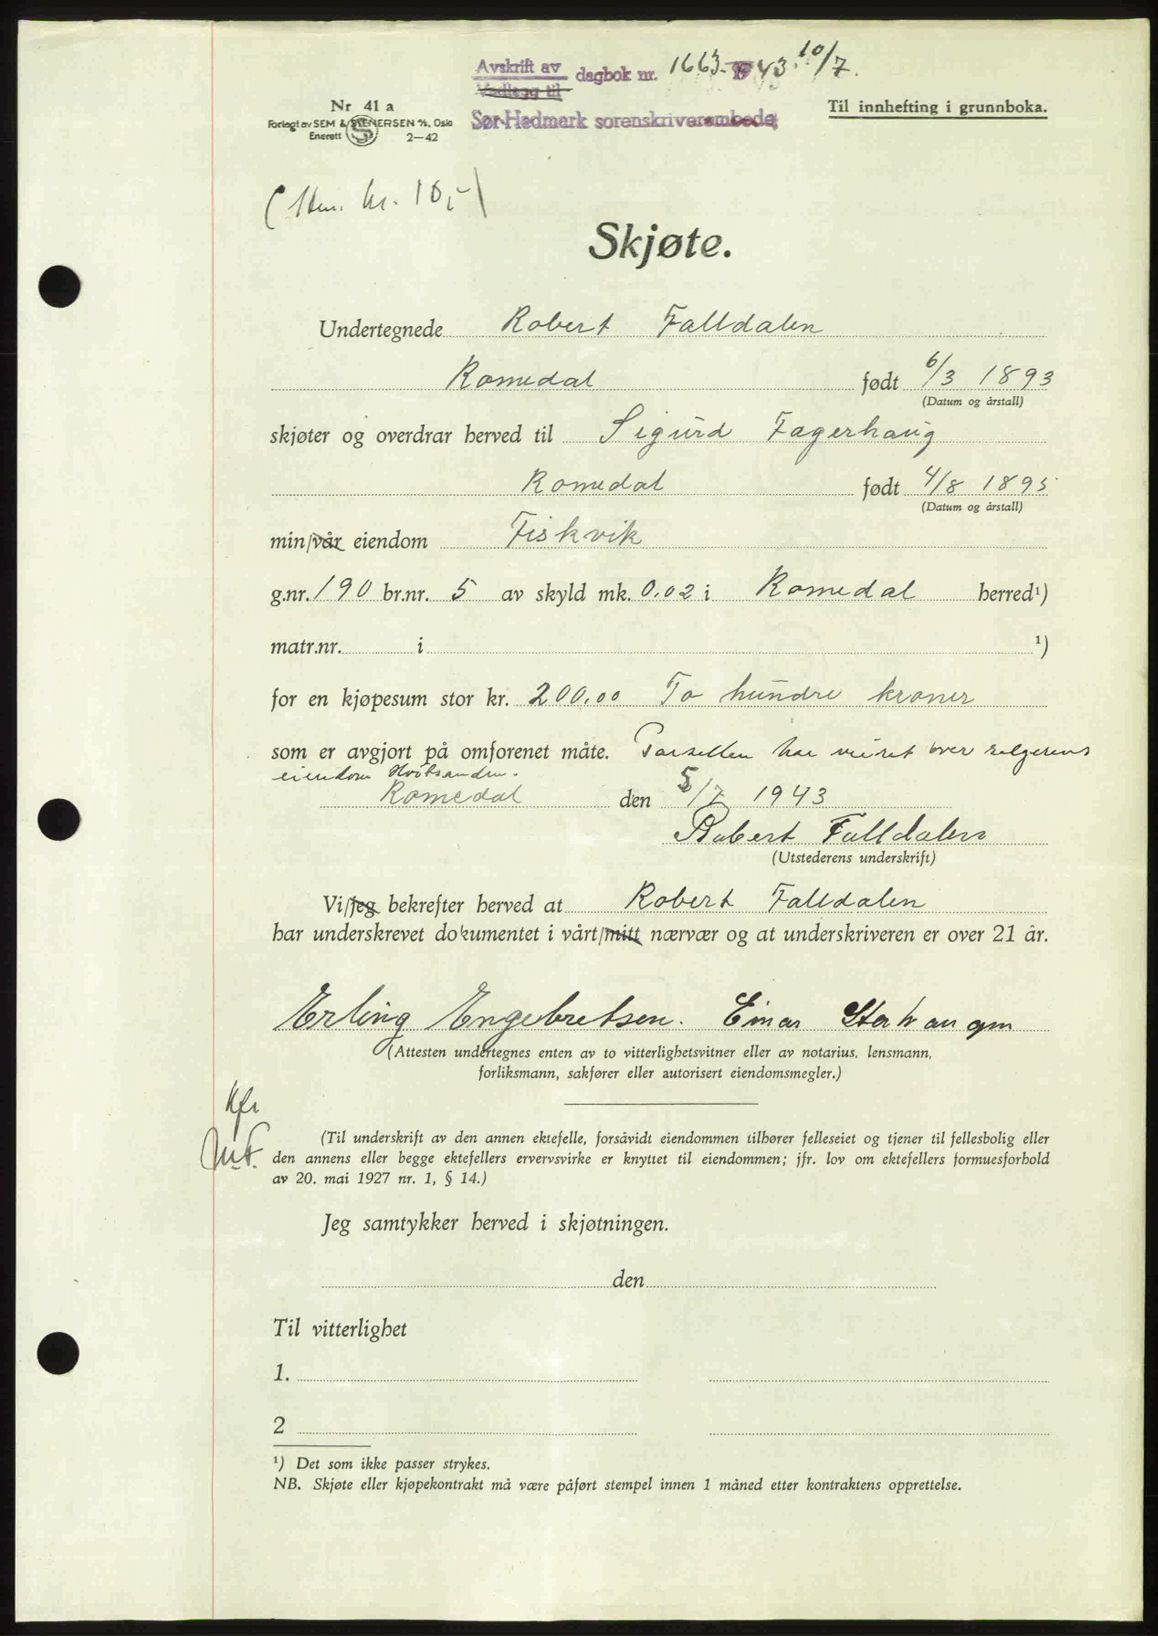 Avskrift av dagbok nr. 1663 - 1943. 10/7.
Vedlegg til
Nr 41 a
Til innhefting i grunnboka.
Forlagt av SEM & STENERSEN A/S, Oslo
Sør-Hedmark sorenskriverembede
Enerett 2—42
kr. 10,-)
Skjøte.
Undertegnede Robert Falldalen
Romedal født 6/3 1893
(Datum og årstall)
skjøter og overdrar herved til Sigurd Fagerhaug
Romedal født 4/8 1895
(Datum og årstall)
min/vår eiendom Fiskvik
g.nr. 190 br.nr. 5 av skyld mk. 0.02 i Romedal herred¹)
matr.nr. i ¹)
for en kjøpesum stor kr. 200.00 To hundre kroner
som er avgjort på omforenet måte. Parsellen har veiret over selgerens
eiendom
Romedal den 5/7 1943
Robert Falldalen
(Utstederens underskrift)
Vi/jeg bekrefter herved at Robert Falldalen
har underskrevet dokumentet i vårt/mitt nærvær og at underskriveren er over 21 år.
Erling Engebretsen. Einar
(Attesten undertegnes enten av to vitterlighetsvitner eller av notarius, lensmann,
forliksmann, sakfører eller autorisert eiendomsmegler.)
Kfr
(Til underskrift av den annen ektefelle, forsåvidt eiendommen tilhører felleseiet og tjener til fellesbolig eller
den annens eller begge ektefellers ervervsvirke er knyttet til eiendommen; jfr. lov om ektefellers formuesforhold
av 20. mai 1927 nr. 1, § 14.)
Jeg samtykker herved i skjøtningen.
den
Til vitterlighet
1.
2
¹) Det som ikke passer strykes.
NB. Skjøte eller kjøpekontrakt må være påført stempel innen 1 måned etter kontraktens opprettelse.